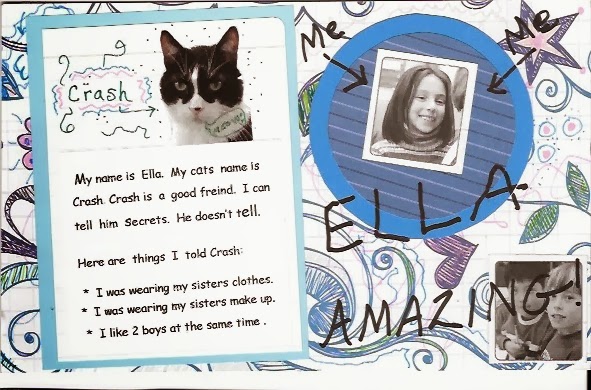 Crash
meow
My name is Ella. My cats name is
Crash. Crash is a good freind. I can
tell him secrets. He doesn't tell.
Here are things I told Crash:
* I was wearing my sisters clothes.
* I was wearing my sisters make up.
* I like 2 boys at the same time .
Me
Me
ELLA
AMAZING!